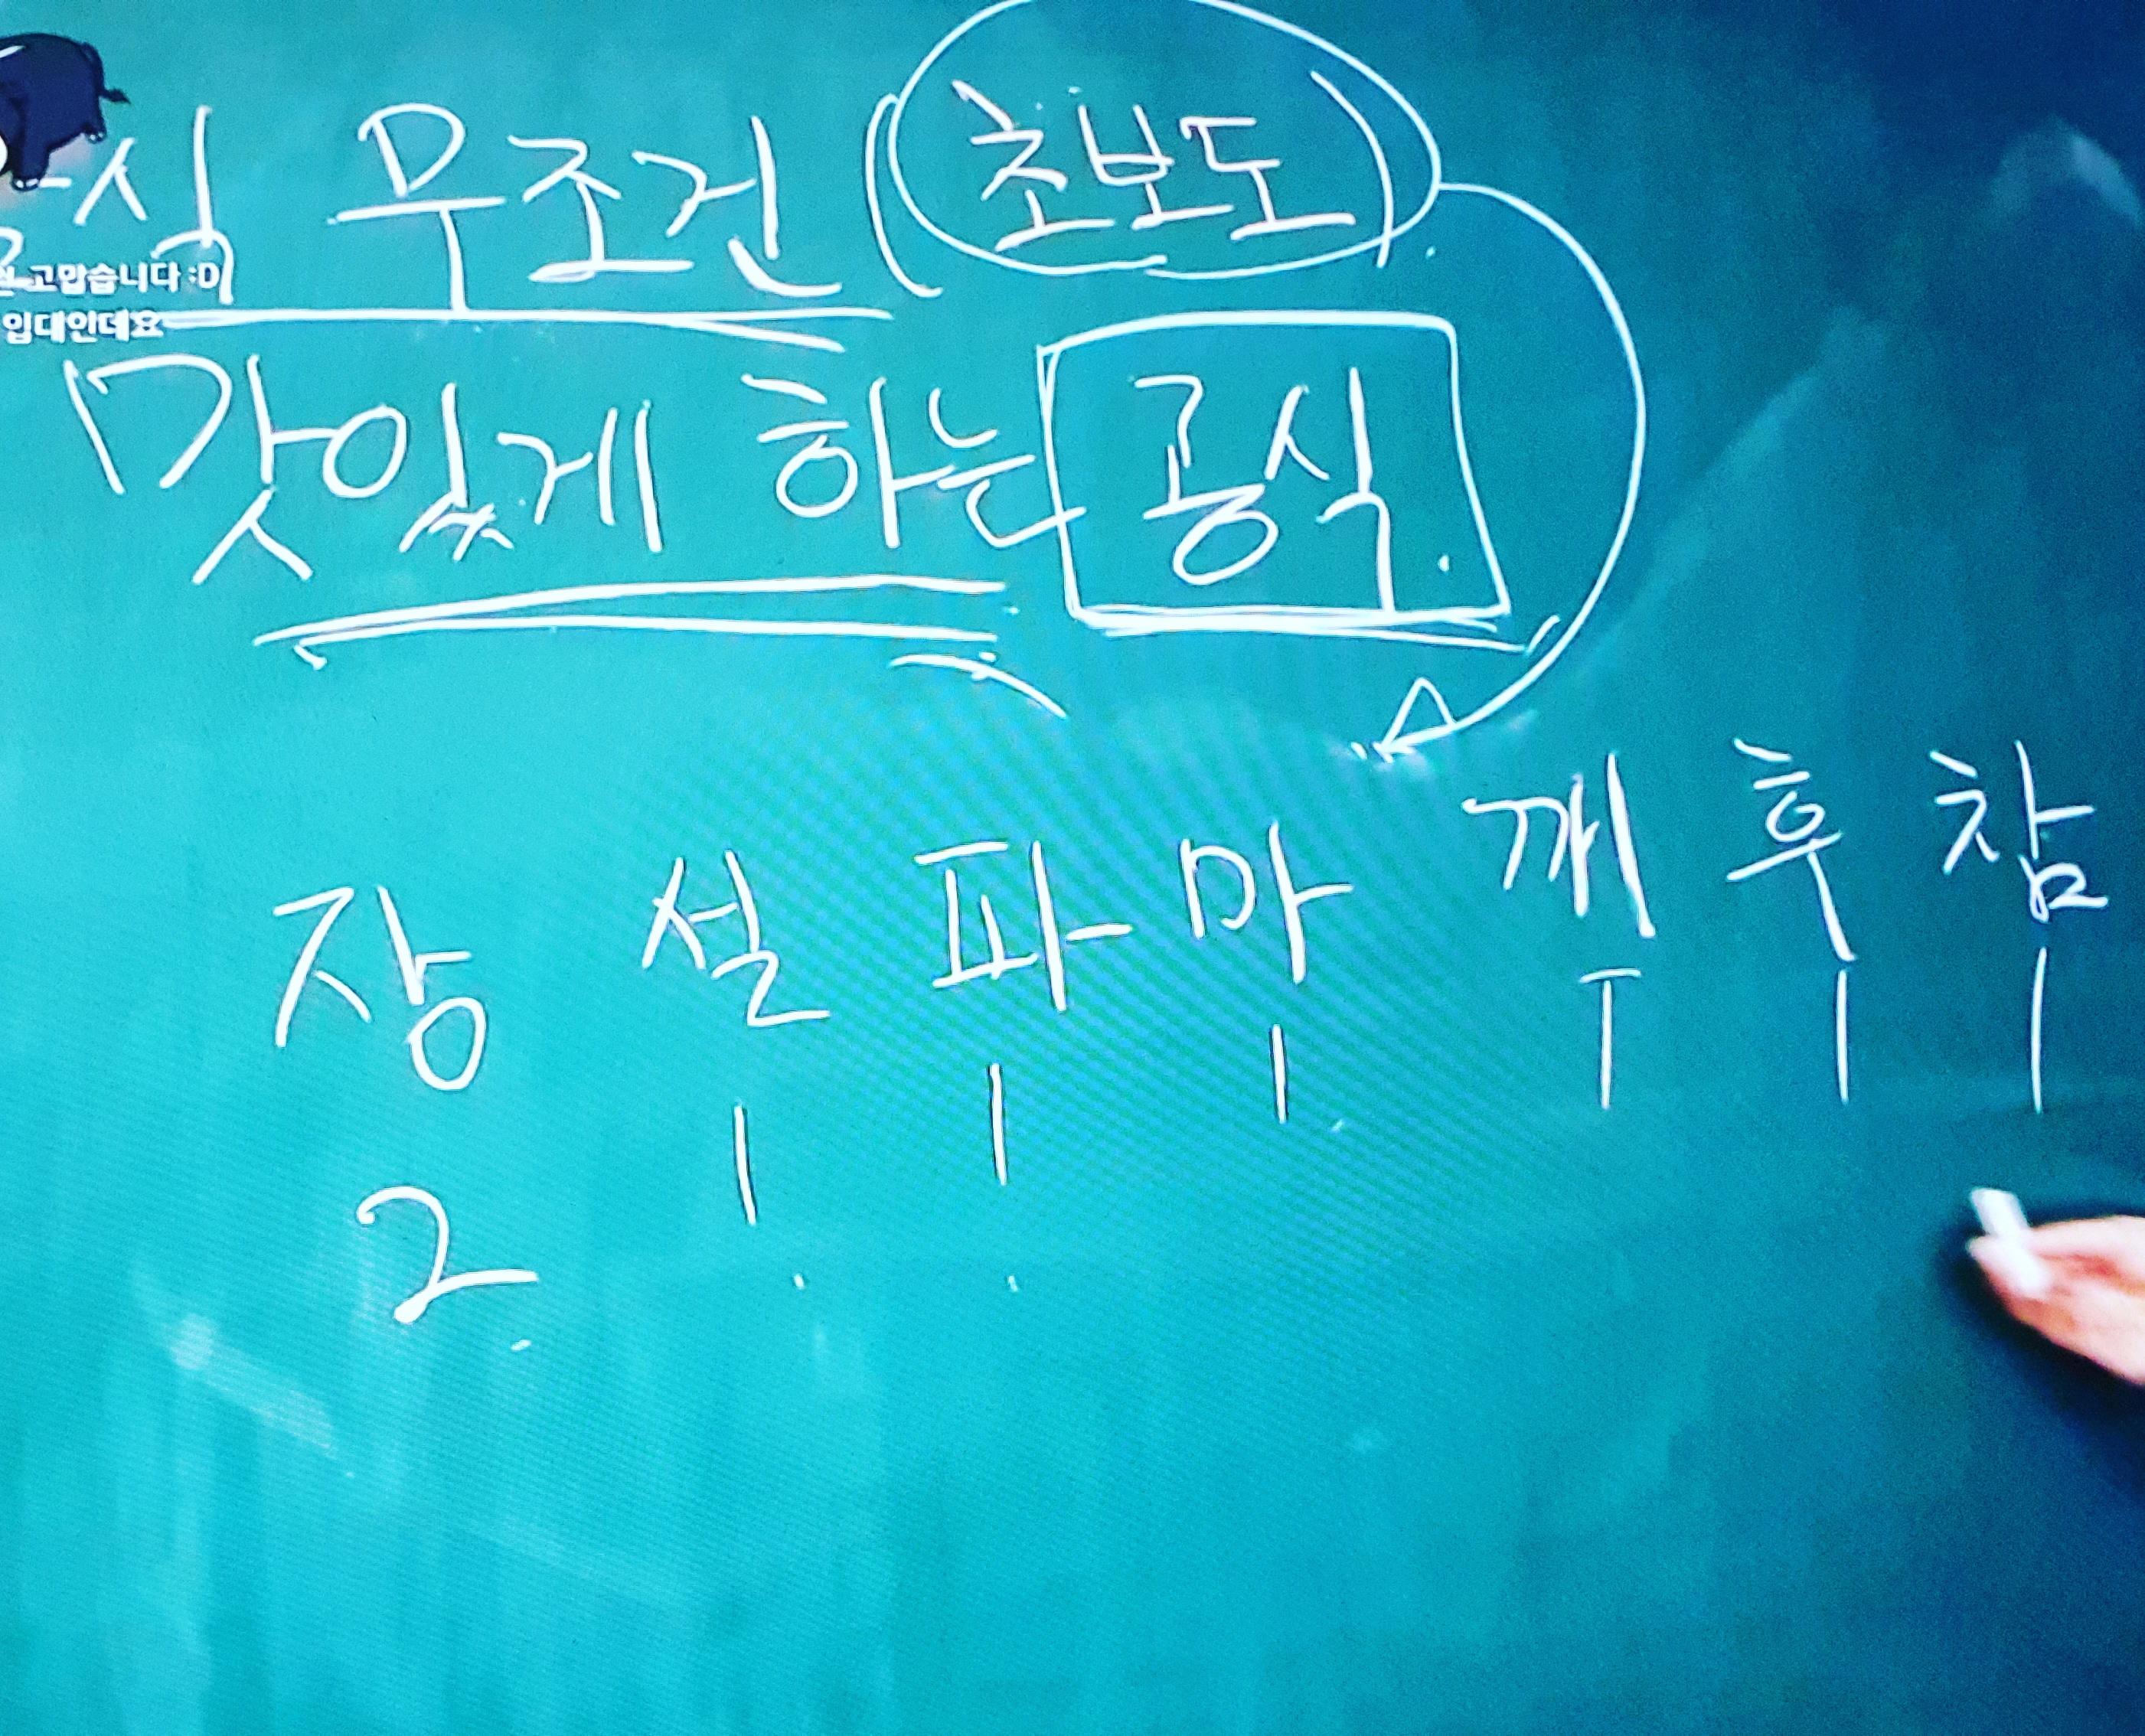 식 무조건 (초보도)
고맙습니다 :D
입대인데요
맛있게 하는 공식.
장 설 파 마 깨 후 참
2 1 1 1 1 1 1